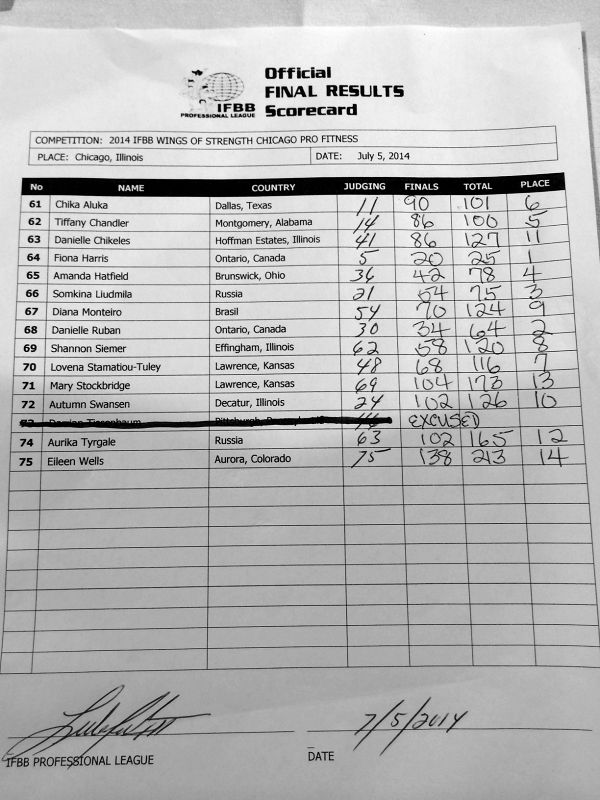 Official
FINAL RESULTS
Scorecard
IFBB
PROFESSIONAL LEAGUE
COMPETITION: 2014 IFBB WINGS OF STRENGTH CHICAGO PRO FITNESS
PLACE: Chicago, Illinois DATE: July 5, 2014
No NAME COUNTRY JUDGING FINALS TOTAL PLACE
61 Chika Aluka Dallas, Texas 11 90 101 6
62 Tiffany Chandler Montgomery, Alabama 14 86 100 5
63 Danielle Chikeles Hoffman Estates, Illinois 41 86 127 11
64 Fiona Harris Ontario, Canada 5 20 25 1
65 Amanda Hatfield Brunswick, Ohio 36 42 78 4
66 Somkina Liudmila Russia 21 54 75 3
67 Diana Monteiro Brasil 54 70 124 9
68 Danielle Ruban Ontario, Canada 30 34 64 2
69 Shannon Siemer Effingham, Illinois 62 58 120 8
70 Lovena Stamatiou-Tuley Lawrence, Kansas 48 68 116 7
71 Mary Stockbridge Lawrence, Kansas 69 104 173 13
72 Autumn Swansen Decatur, Illinois 24 102 126 10
73 EXCUSED
74 Aurika Tyrgale Russia 63 102 165 12
75 Eileen Wells Aurora, Colorado 75 138 213 14
7/5/2014
IFBB PROFESSIONAL LEAGUE DATE